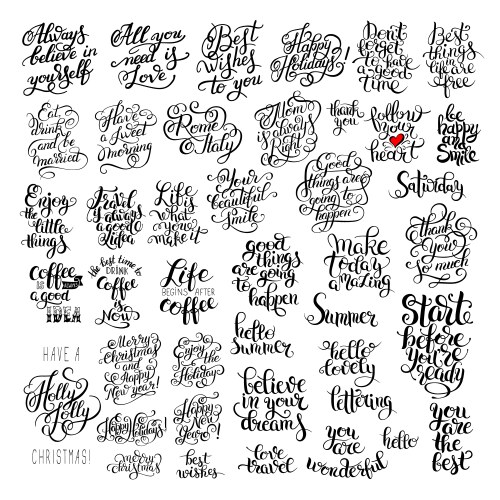 Always
believe in
yourself
All you
need is
Love
Best
wishes
to you
Happy
Holidays!
Don't
forget
to have
a good
time
Best
things
in
life are
free
Eat
drink
and be
married
Have
a sweet
morning
Rome
Italy
Mom
is always
Right
thank
you
follow
your
heart
be
happy
and
smile
Enjoy
the little
things
Travel
is always
a good
idea
Life
is
what
you
make it
Your
beautiful
Smile
Good
things are
going to
happen
Saturday
Thank
you
so much
coffee
IS ALWAYS
a good
IDEA
the best time to
DRINK
Coffee
is
Now
Life
BEGINS AFTER
coffee
good
things
are going
to happen
make
today
amazing
Summer
Start
before
you're
ready
hello
summer
HAVE A
Holly
Jolly
CHRISTMAS!
Merry
Christmas
and
Happy
New year!
Enjoy
the
Holiday
hello
lovely
believe
in your
dreams
lettering
Happy Holidays!
Happy
New
Year!
you
are
wonderful
hello
you
are
the
best
merry
christmas
best
wishes
love
travel